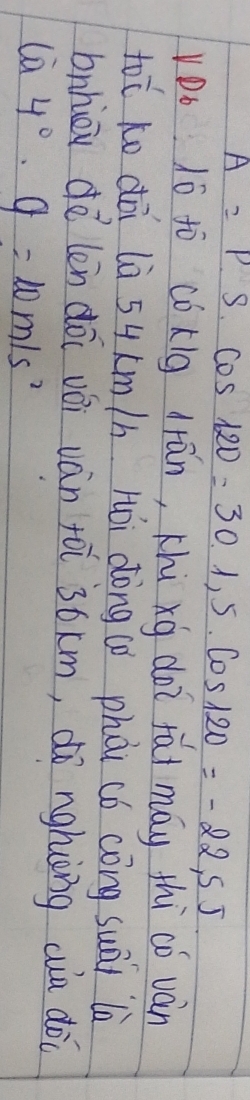 A = P.S. Cos 120 = 30.1,5. Cos 120 = -22,5J
VD6: 1ô tô có klg 1tấn, khi xg dốc tắt máy thì có vận
tốc ko đổi là 54km/h. Hỏi động cơ phải có công suất là
bnhiêu để lên dốc với vận tốc 36km, độ nghiêng của dốc
là 4°. g = 10m/s²